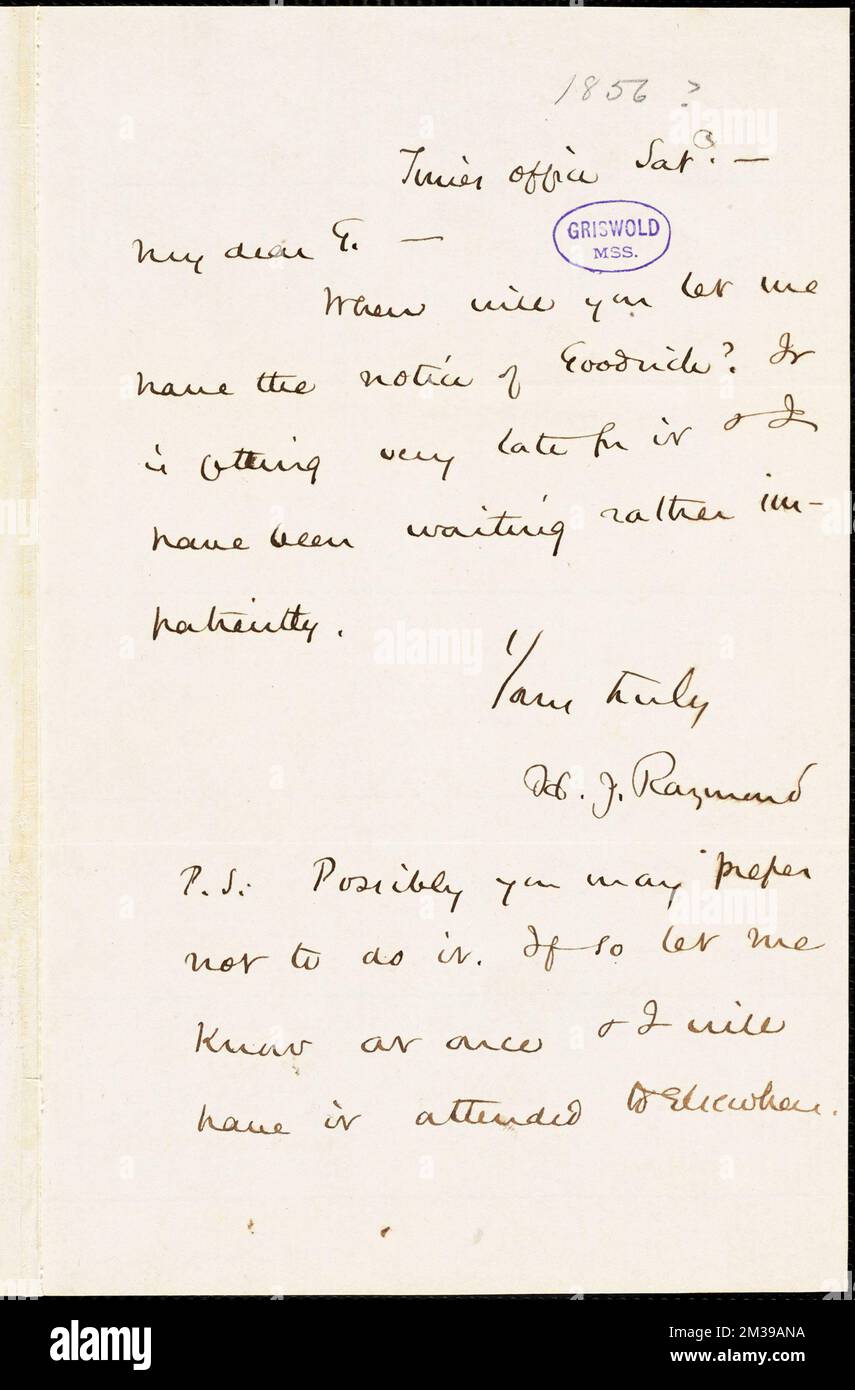 1856 ?
Times office Saty. —
My dear G. —
GRISWOLD
MSS.
When will you let me
have the notice of Goodrich? It
is getting very late for it & I
have been waiting rather im-
patiently.
Yours truly
H. J. Raymond
P.S. Possibly you may prefer
not to do it. If so let me
know at once & I will
have it attended to elsewhere.
alamy
Image ID: 2M39ANA
www.alamy.com